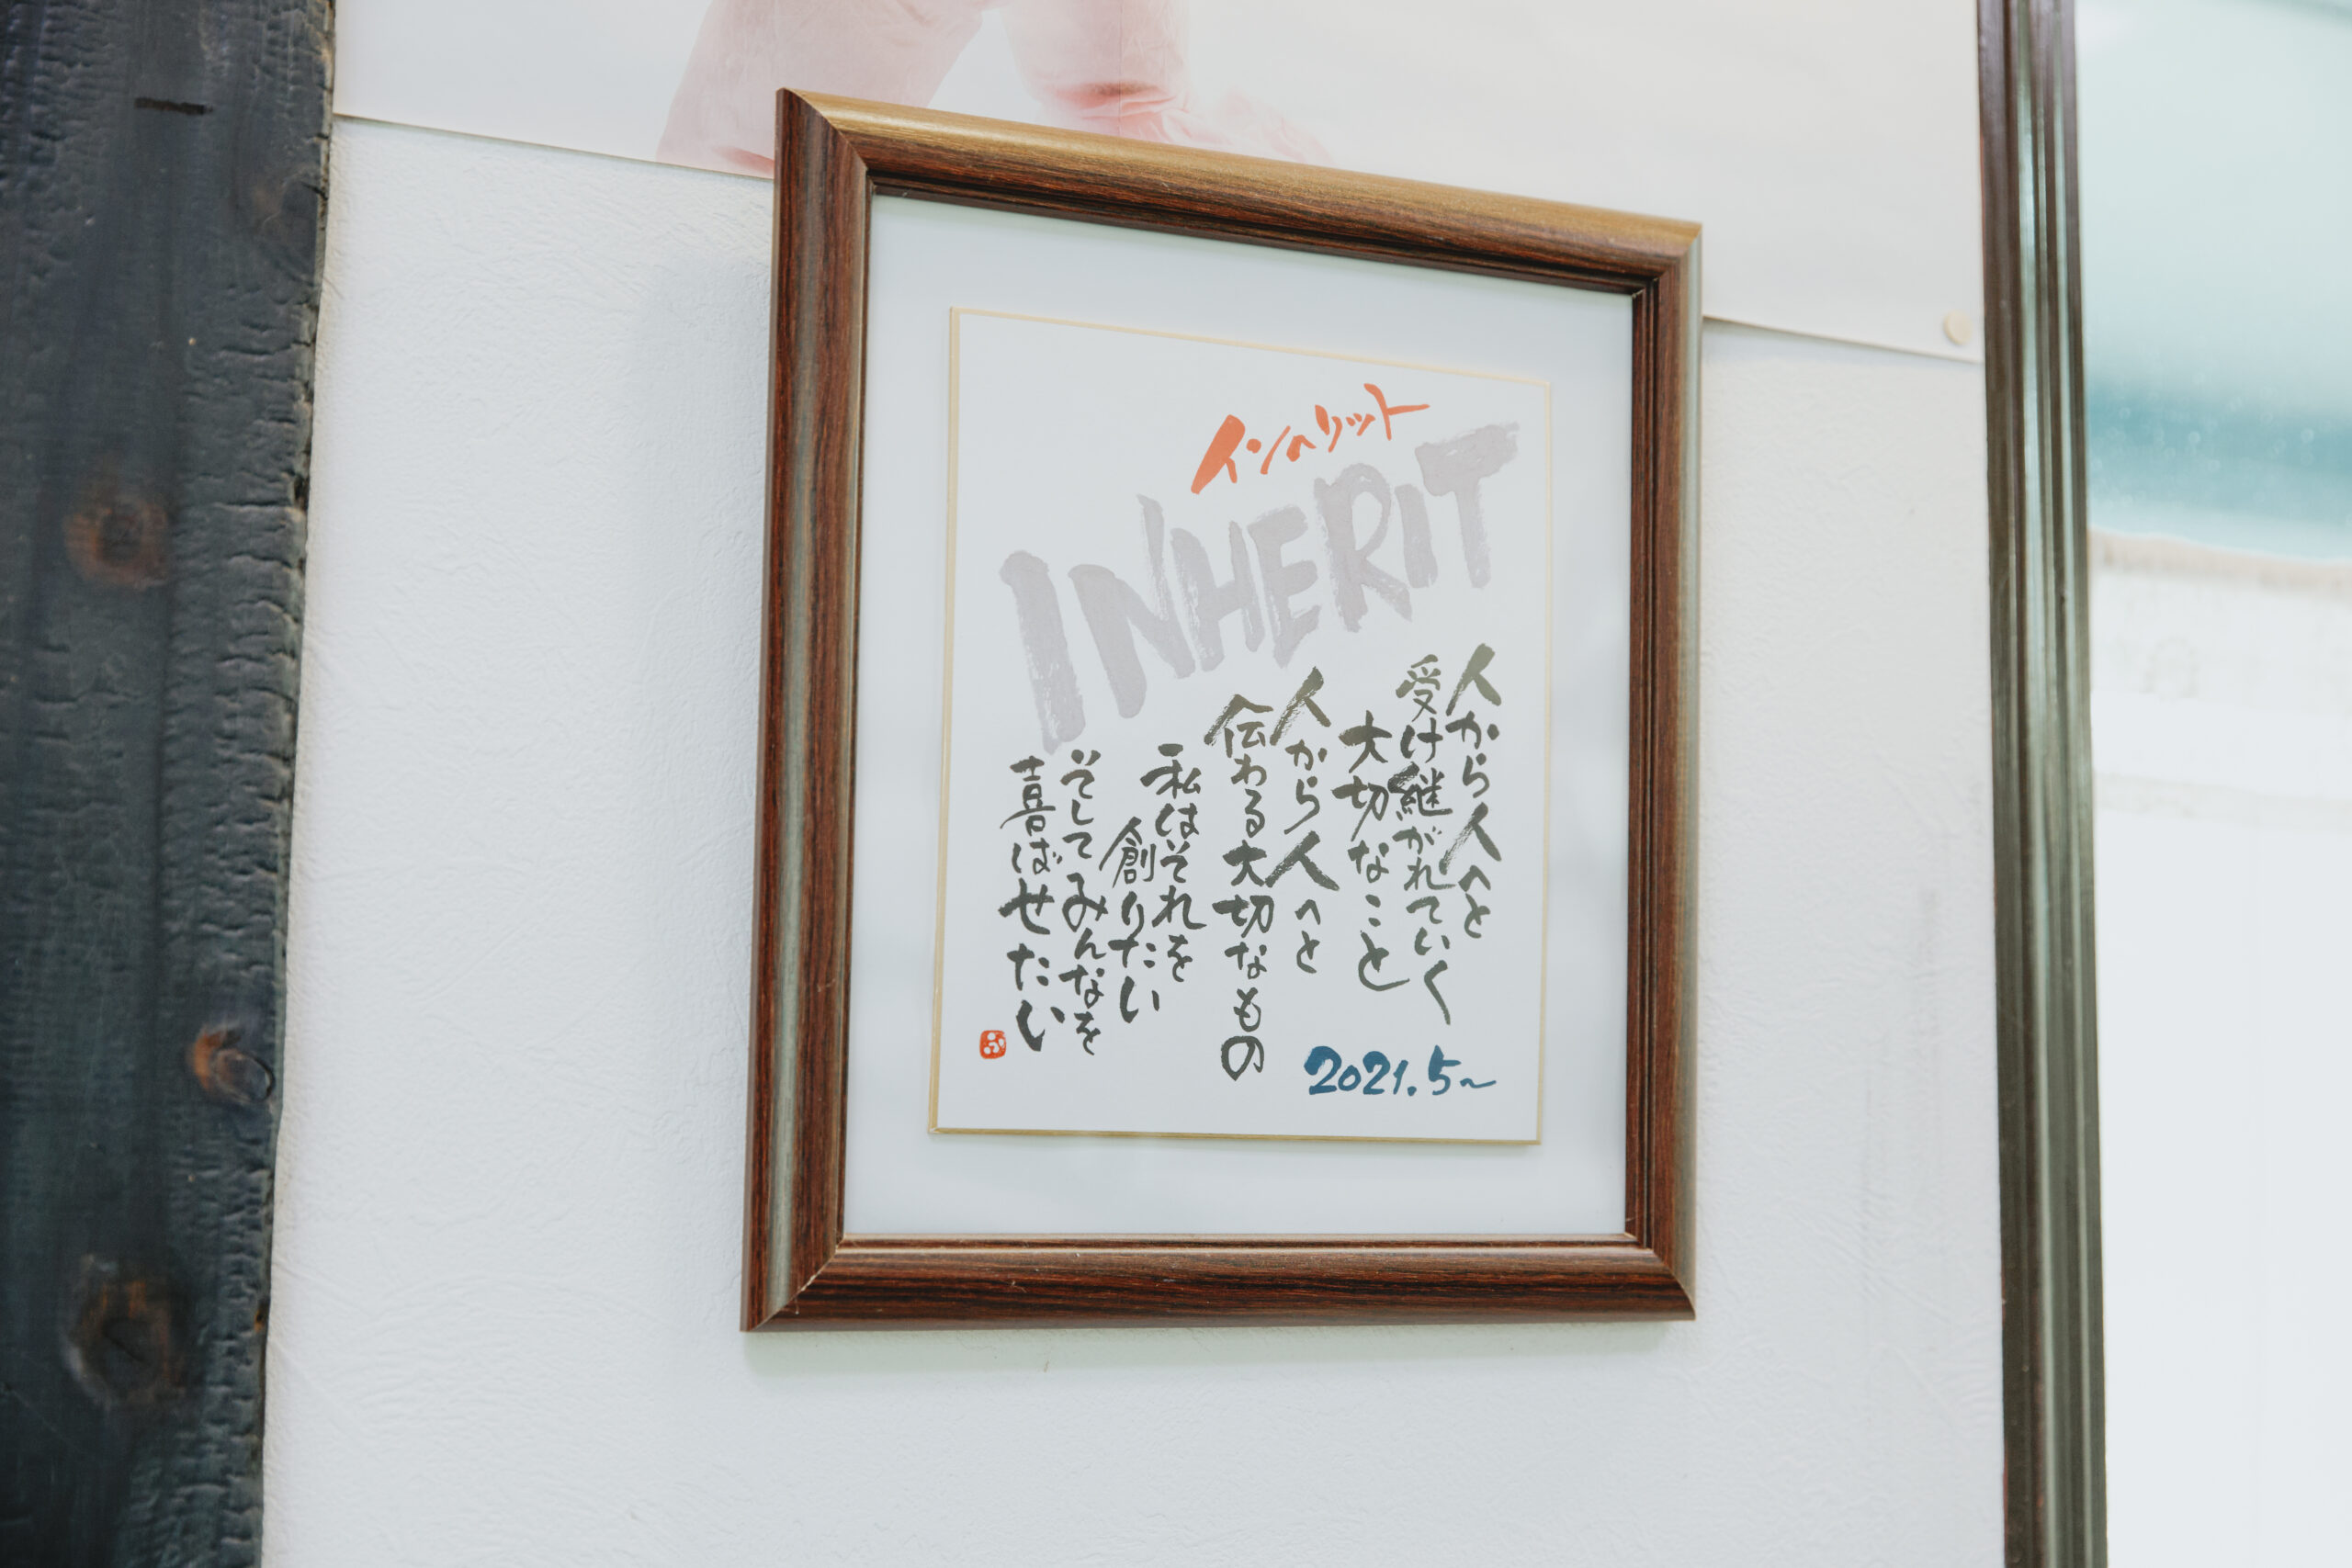 インヘリット
INHERIT
人から人へと
受け継がれていく
大切なこと
人から人へと
伝わる大切なもの
私はそれを
創りたい
そしてみんなを
喜ばせたい
2021.5~